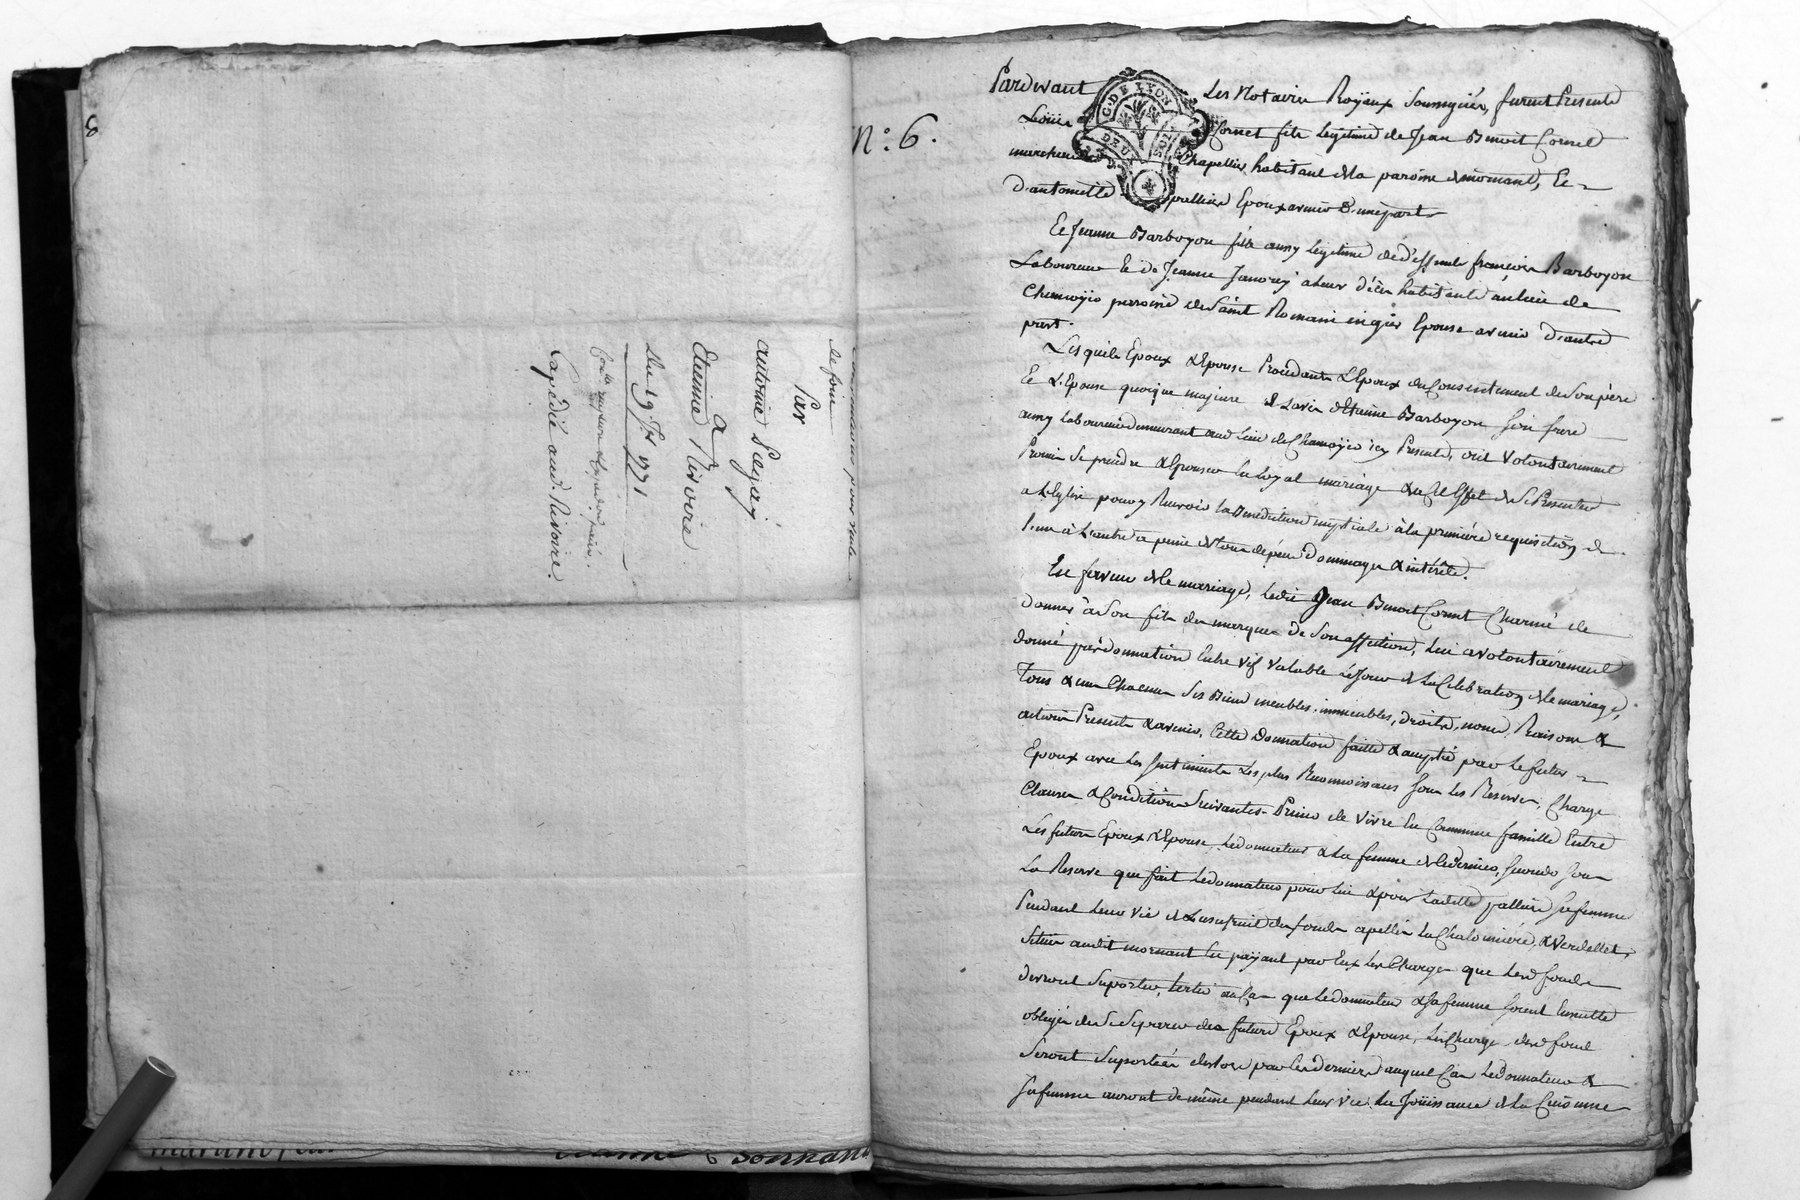 8
de foin
Par
antoine
a
Etienne Rivoire
Du 19 1771
Expedié aud. Rivoire.
N.º 6.
G. DE LYON
DEUX SOLS
Pardevant Les Notaires Royaux soussignés, furent Presents
Louis Cornet fils legitime de Jean Benoit Cornet
marchand Chapellier habitant de la paroisse de mornant, Et
d'antoinette pallière Epoux avenir d'une part
Et Jeanne Barboyon fille aussy legitime de deffunts françois Barboyon
Laboureur Et de Jeanne a leur décès habitants au lieu de
paroisse de Saint Romain en gier Epouse avenir d'autre
part.
Lesquels Epoux & Epouse Procedants L'Epoux du Consentement de Son père
Et L'Epouse quoique majeure de L'avis d'Etienne Barboyon son frere
aussy laboureur demeurant aud lieu de icy Present, ont Volontairement
Promis Se prendre & Epouser En Loyal mariage & a Cet Effet de Se Presenter
a L'Eglise pour y Recevoir la Benediction nuptiale à la première requisition de
l'un à L'autre a peine de tous depens Dommages & intérêts.
En faveur de Ce mariage, ledit Jean Benoit Cornet Charmé de
donner à Son fils des marques de Son affection, Lui a Volontairement
donné par donnation Entre Vifs Valable Le Jour de La Celebration de Ce mariage,
Tous & un Chacun Ses Biens meubles, immeubles, droits, noms, Raisons &
actions Presents & avenir, Cette Donnation faitte & acceptée par le futur
Epoux avec Les Sentiments Les plus Reconnoissans Sous Les Reserves, Charge
Clauses & Conditions Suivantes. Primo de Vivre En Commune famille Entre
Les futurs Epoux & Epouse, Le donnateur & La femme de Ce dernier, Secundo Sous
La Reserve que fait Le donnateur pour Lui & pour Ladite pallière Sa femme
Pendant Leur Vie de L'usufruit des fonds apellés La Chalonnière, & Verdellet,
Situés audit mornant En payant par Eux Les Charges que Lesd fonds
devront Suporter, tertio au Cas que Le donnateur & Sa femme Soient Ensuitte
obligés de Se Separer des futurs Epoux & Epouse, Les Charges desd fonds
Seront Suportées deslors par Ces derniers auquel Cas Le Donnateur &
Sa femme auront de même pendant Leur Vie La Joüissance de La Cuisinne